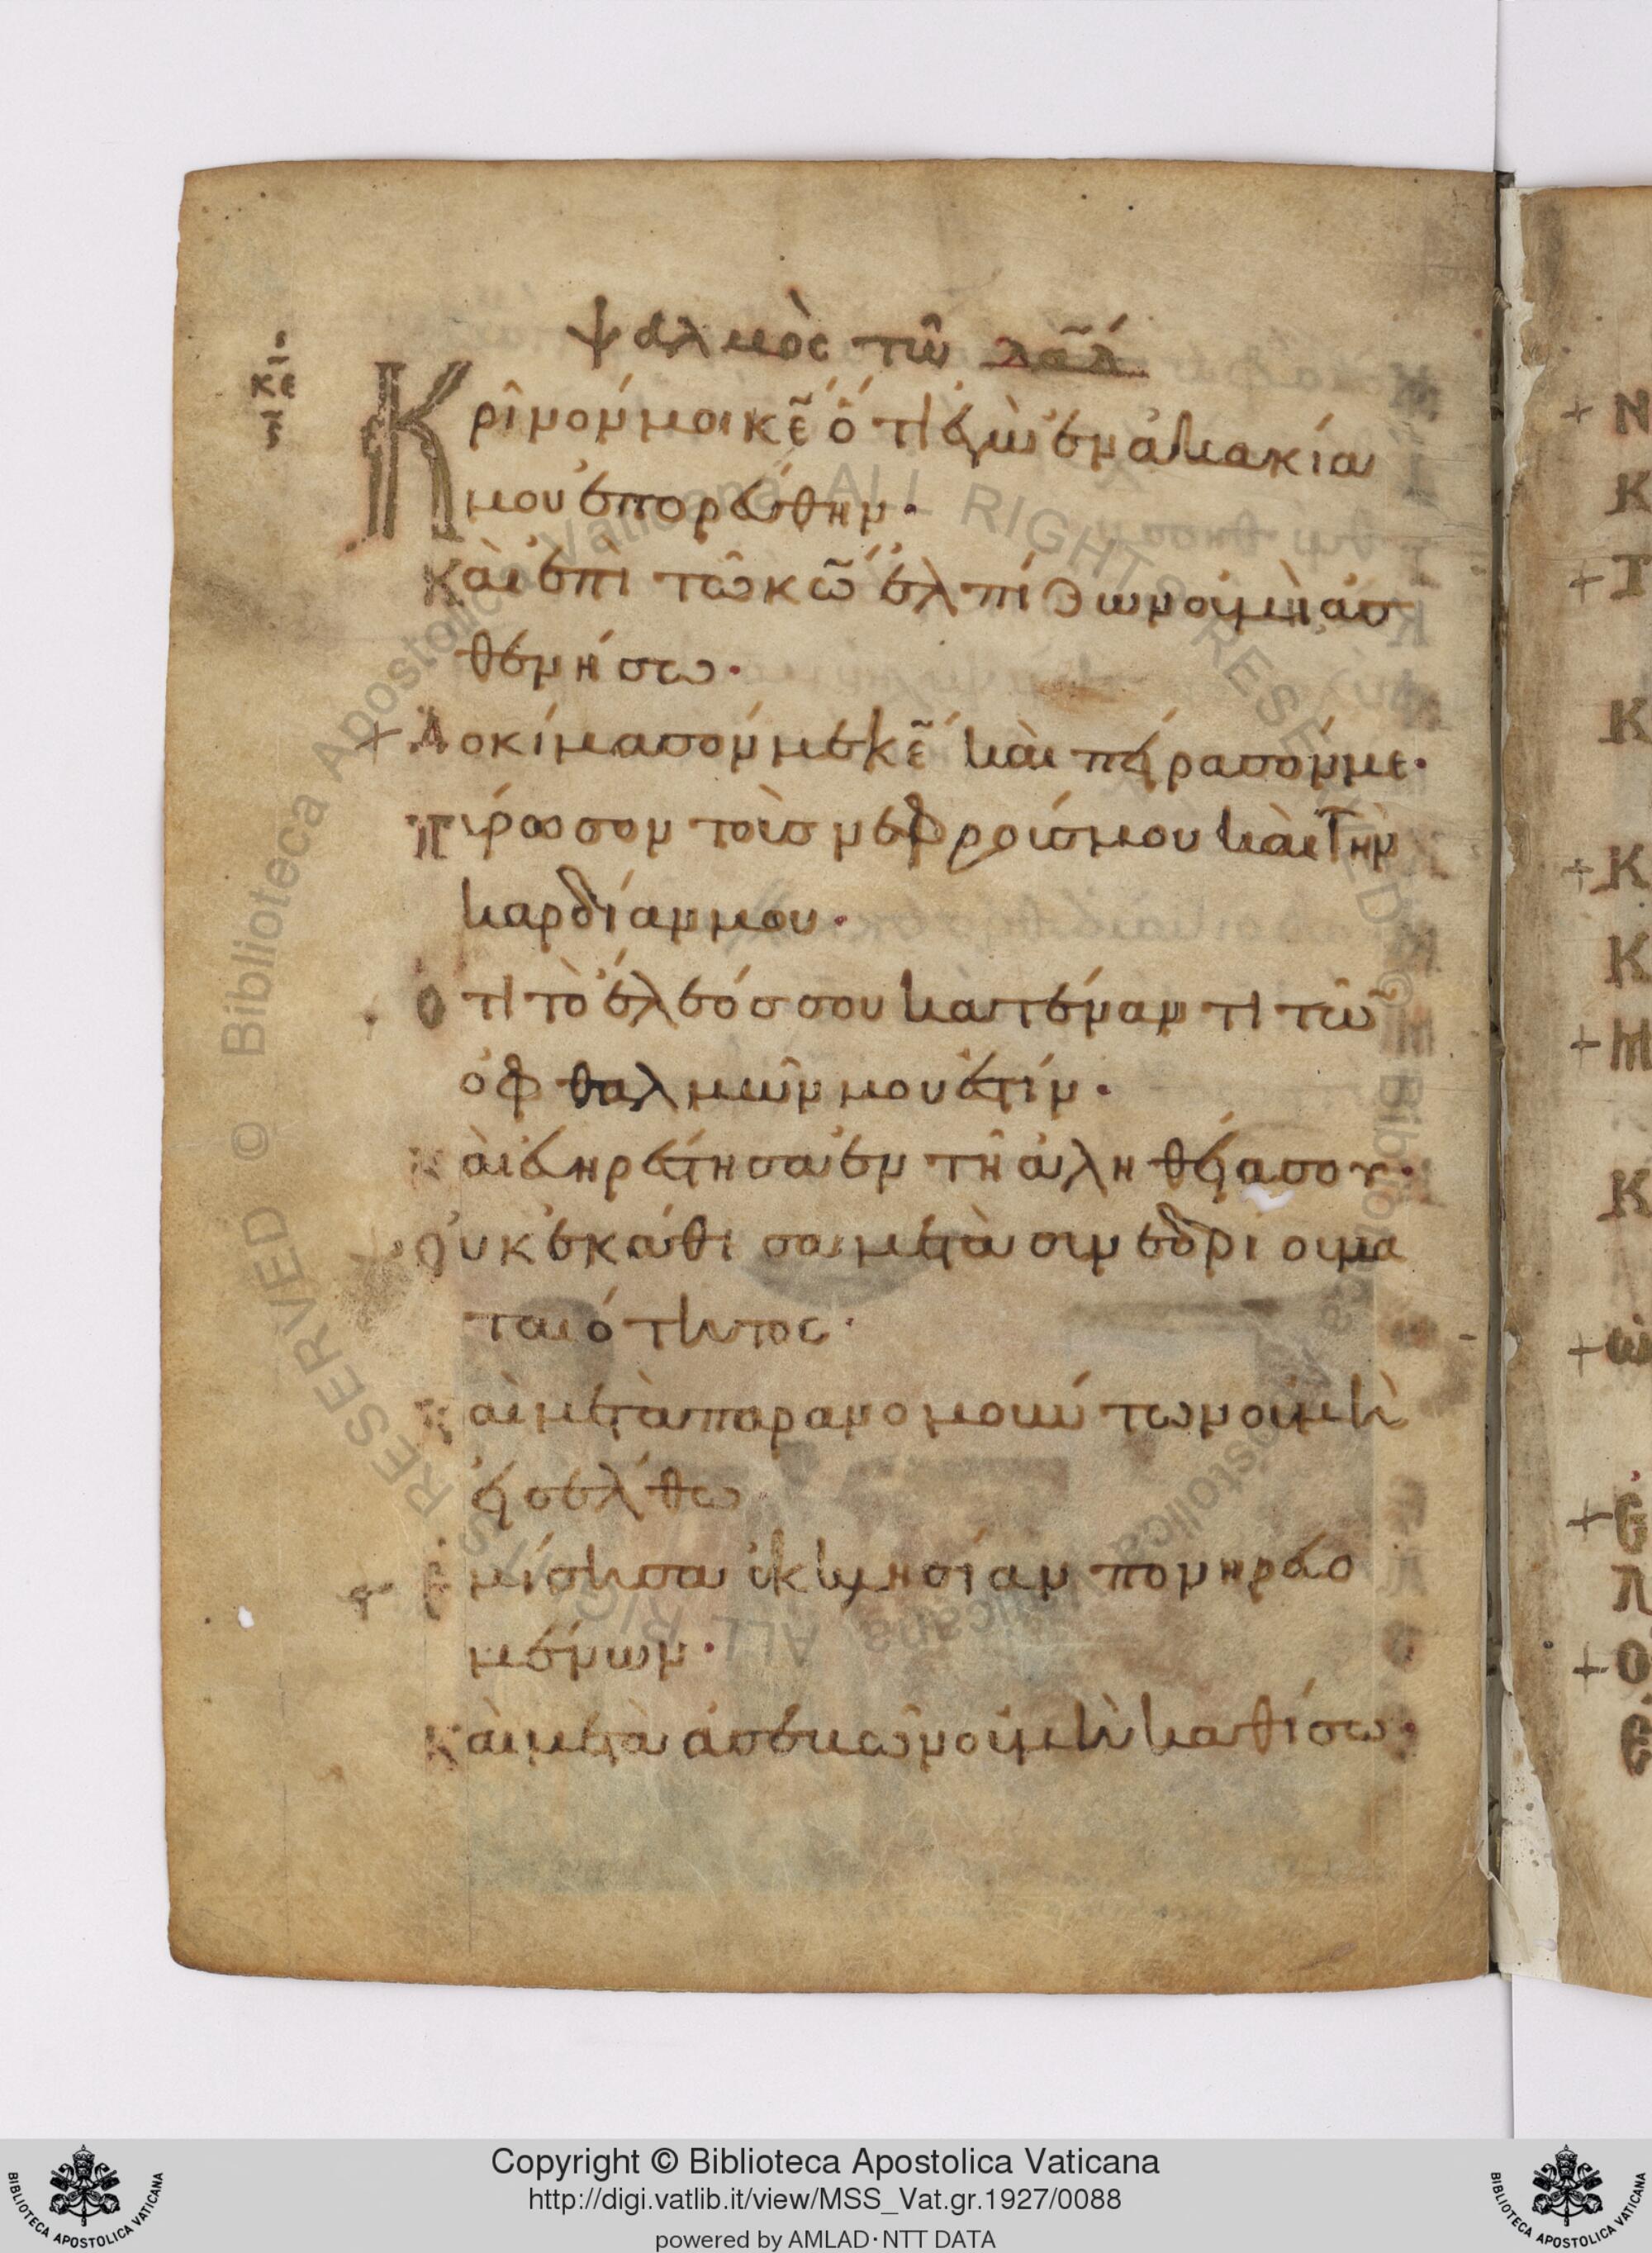 ψαλμὸς τῶ δᾱδ
κε
Κρῖνόν μοι κ̅ε̅ ὅτι ἐγὼ ἐν ἀκακία
μου ἐπορεύθην·
Καὶ ἐπὶ τῶ κ̅ω̅ ἐλπίζων οὐ μὴ ἀσ
θενήσω·
+ Δοκίμασόν με κ̅ε̅ καὶ πείρασόν με·
πύρωσον τοὺσ νεφρούσ μου καὶ τὴν
καρδίαν μου·
+ ὅτι τὸ ἔλεόσ σου κατέναντι τῶ̅
ὀφθαλμῶν μου ἐστίν·
καὶ εὐηρέστησα ἐν τῆ ἀληθείασου·
+ Οὐκ ἐκάθισα μετὰ συνεδρίου μα
ταιότητος·
καὶ μετὰ παρανομούντων οὐ μὴ
εἰσέλθω
+ Ἐμίσησα ἐκκλησίαν πονηρευο
μένων·
Καὶ μετὰ ἀσεβῶν οὐ μὴ καθίσω·
+ Ν
Κ
+ Τ
Κ
+ Κ
Κ
+ Μ
Κ
+ ὡ
+ Ἐ
Λ
+ Ο
Ἐ
© Biblioteca Apostolica Vaticana ALL RIGHTS RESERVED © Biblioteca Apostolica Vaticana ALL RIGHTS RESERVED
Copyright © Biblioteca Apostolica Vaticana
http://digi.vatlib.it/view/MSS_Vat.gr.1927/0088
powered by AMLAD·NTT DATA
BIBLIOTECA APOSTOLICA VATICANA
BIBLIOTECA APOSTOLICA VATICANA